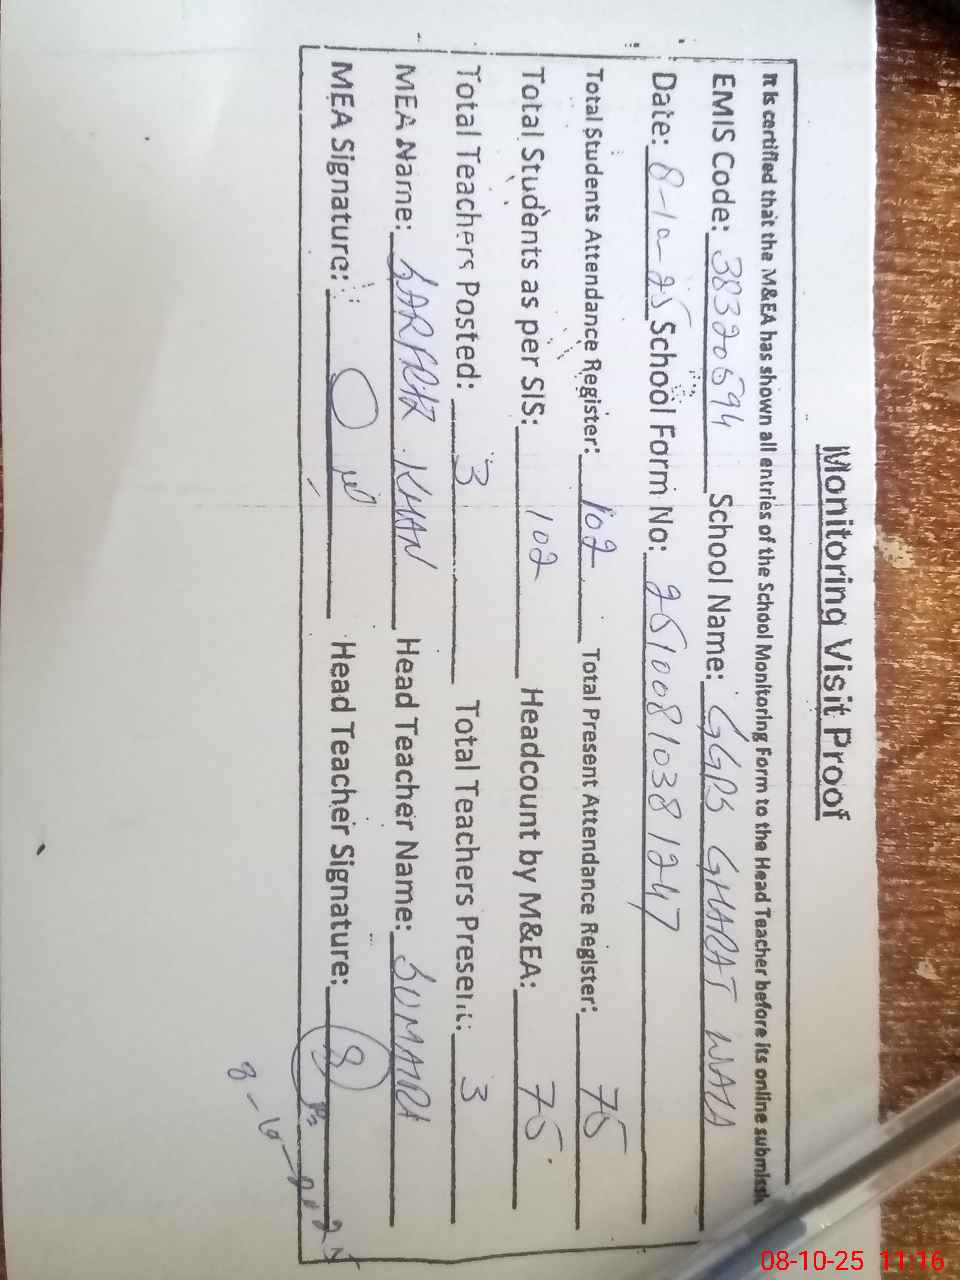 Monitoring Visit Proof
It is certified that the M&EA has shown all entries of the School Monitoring Form to the Head Teacher before its online submissi
EMIS Code: 38320594 School Name: GGPS GHARAT WALA
Date: 8-10-25 School Form No: 25100810381247
Total Students Attendance Register: 102 Total Present Attendance Register: 75
Total Students as per SIS: 102 Headcount by M&EA: 75
Total Teachers Posted: 3 Total Teachers Present: 3
MEA Name: SARFRAZ KHAN Head Teacher Name: SUMAIRA
MEA Signature: Head Teacher Signature:
8-10-2025
08-10-25 11:16